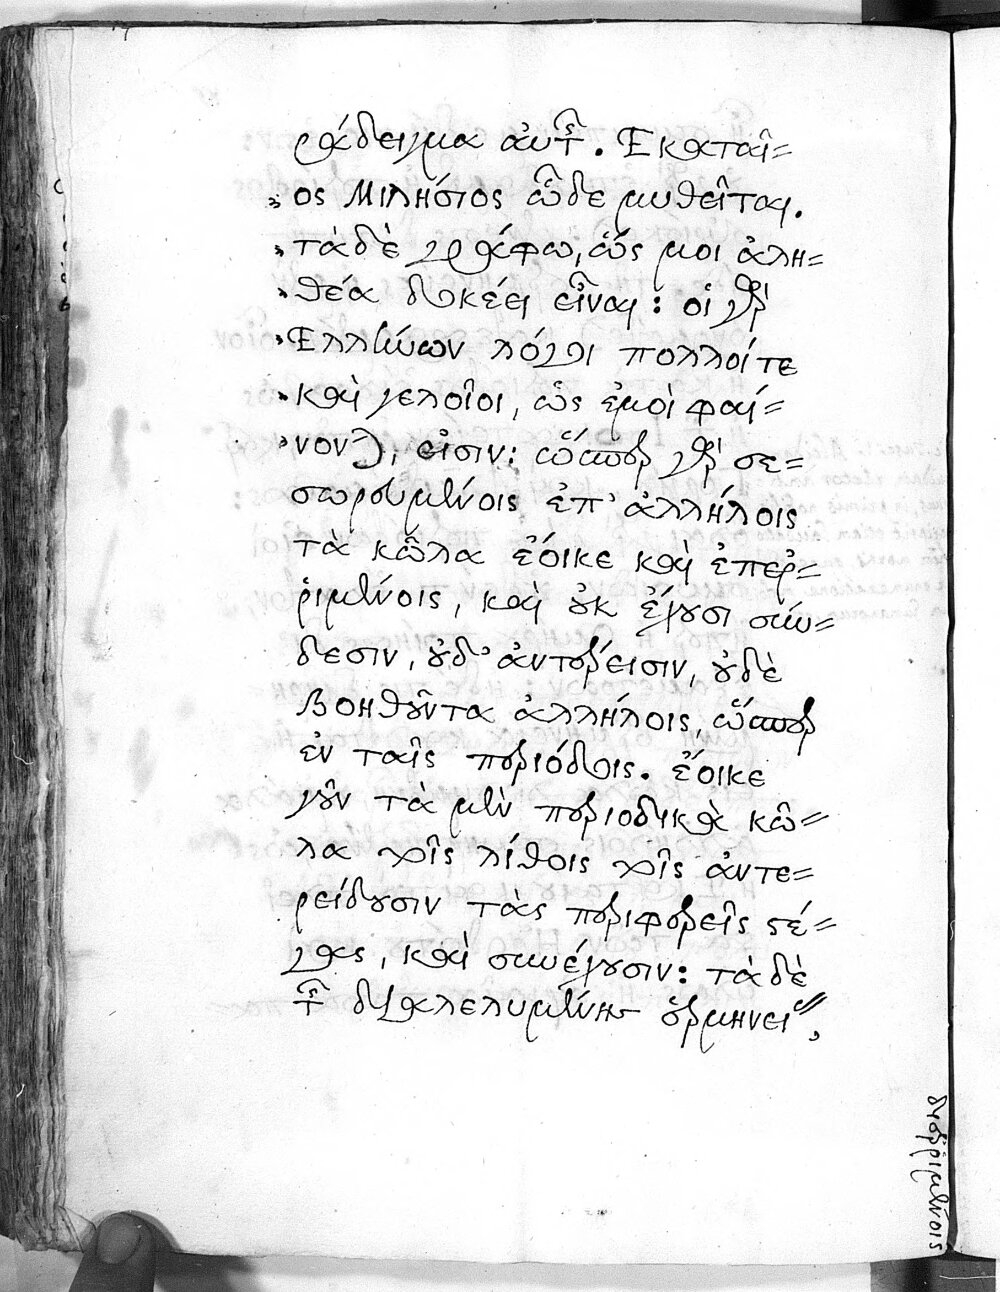 ράδειγμα αὐτῆς. Ἑκαταῖ=
ος Μιλήσιος ὧδε μυθεῖται.
τὰ δὲ γράφω, ὥς μοι ἀλη=
θέα δοκέει εἶναι: οἱ γὰρ
Ἑλλήνων λόγοι πολλοί τε
καὶ γελοῖοι, ὡς ἐμοὶ φαί=
νονται, εἰσιν: ὥσπερ γὰρ σε=
σωρευμένοις ἐπ' ἀλλήλοις
τὰ κῶλα ἔοικε καὶ ἐπερ=
ριμένοις, καὶ οὐκ ἔχουσι σύν=
δεσιν, οὐδ' ἀντέρεισιν, οὐδὲ
βοηθοῦντα ἀλλήλοις, ὥσπερ
ἐν ταῖς περιόδοις. ἔοικε
γοῦν τὰ μὲν περιοδικὰ κῶ=
λα τοῖς λίθοις τοῖς ἀντε=
ρείδουσιν τὰς περιφερεῖς στέ=
γας, καὶ συνέχουσιν: τὰ δὲ
τῆς διαλελυμένης ἑρμηνείας,
διερριμένοις